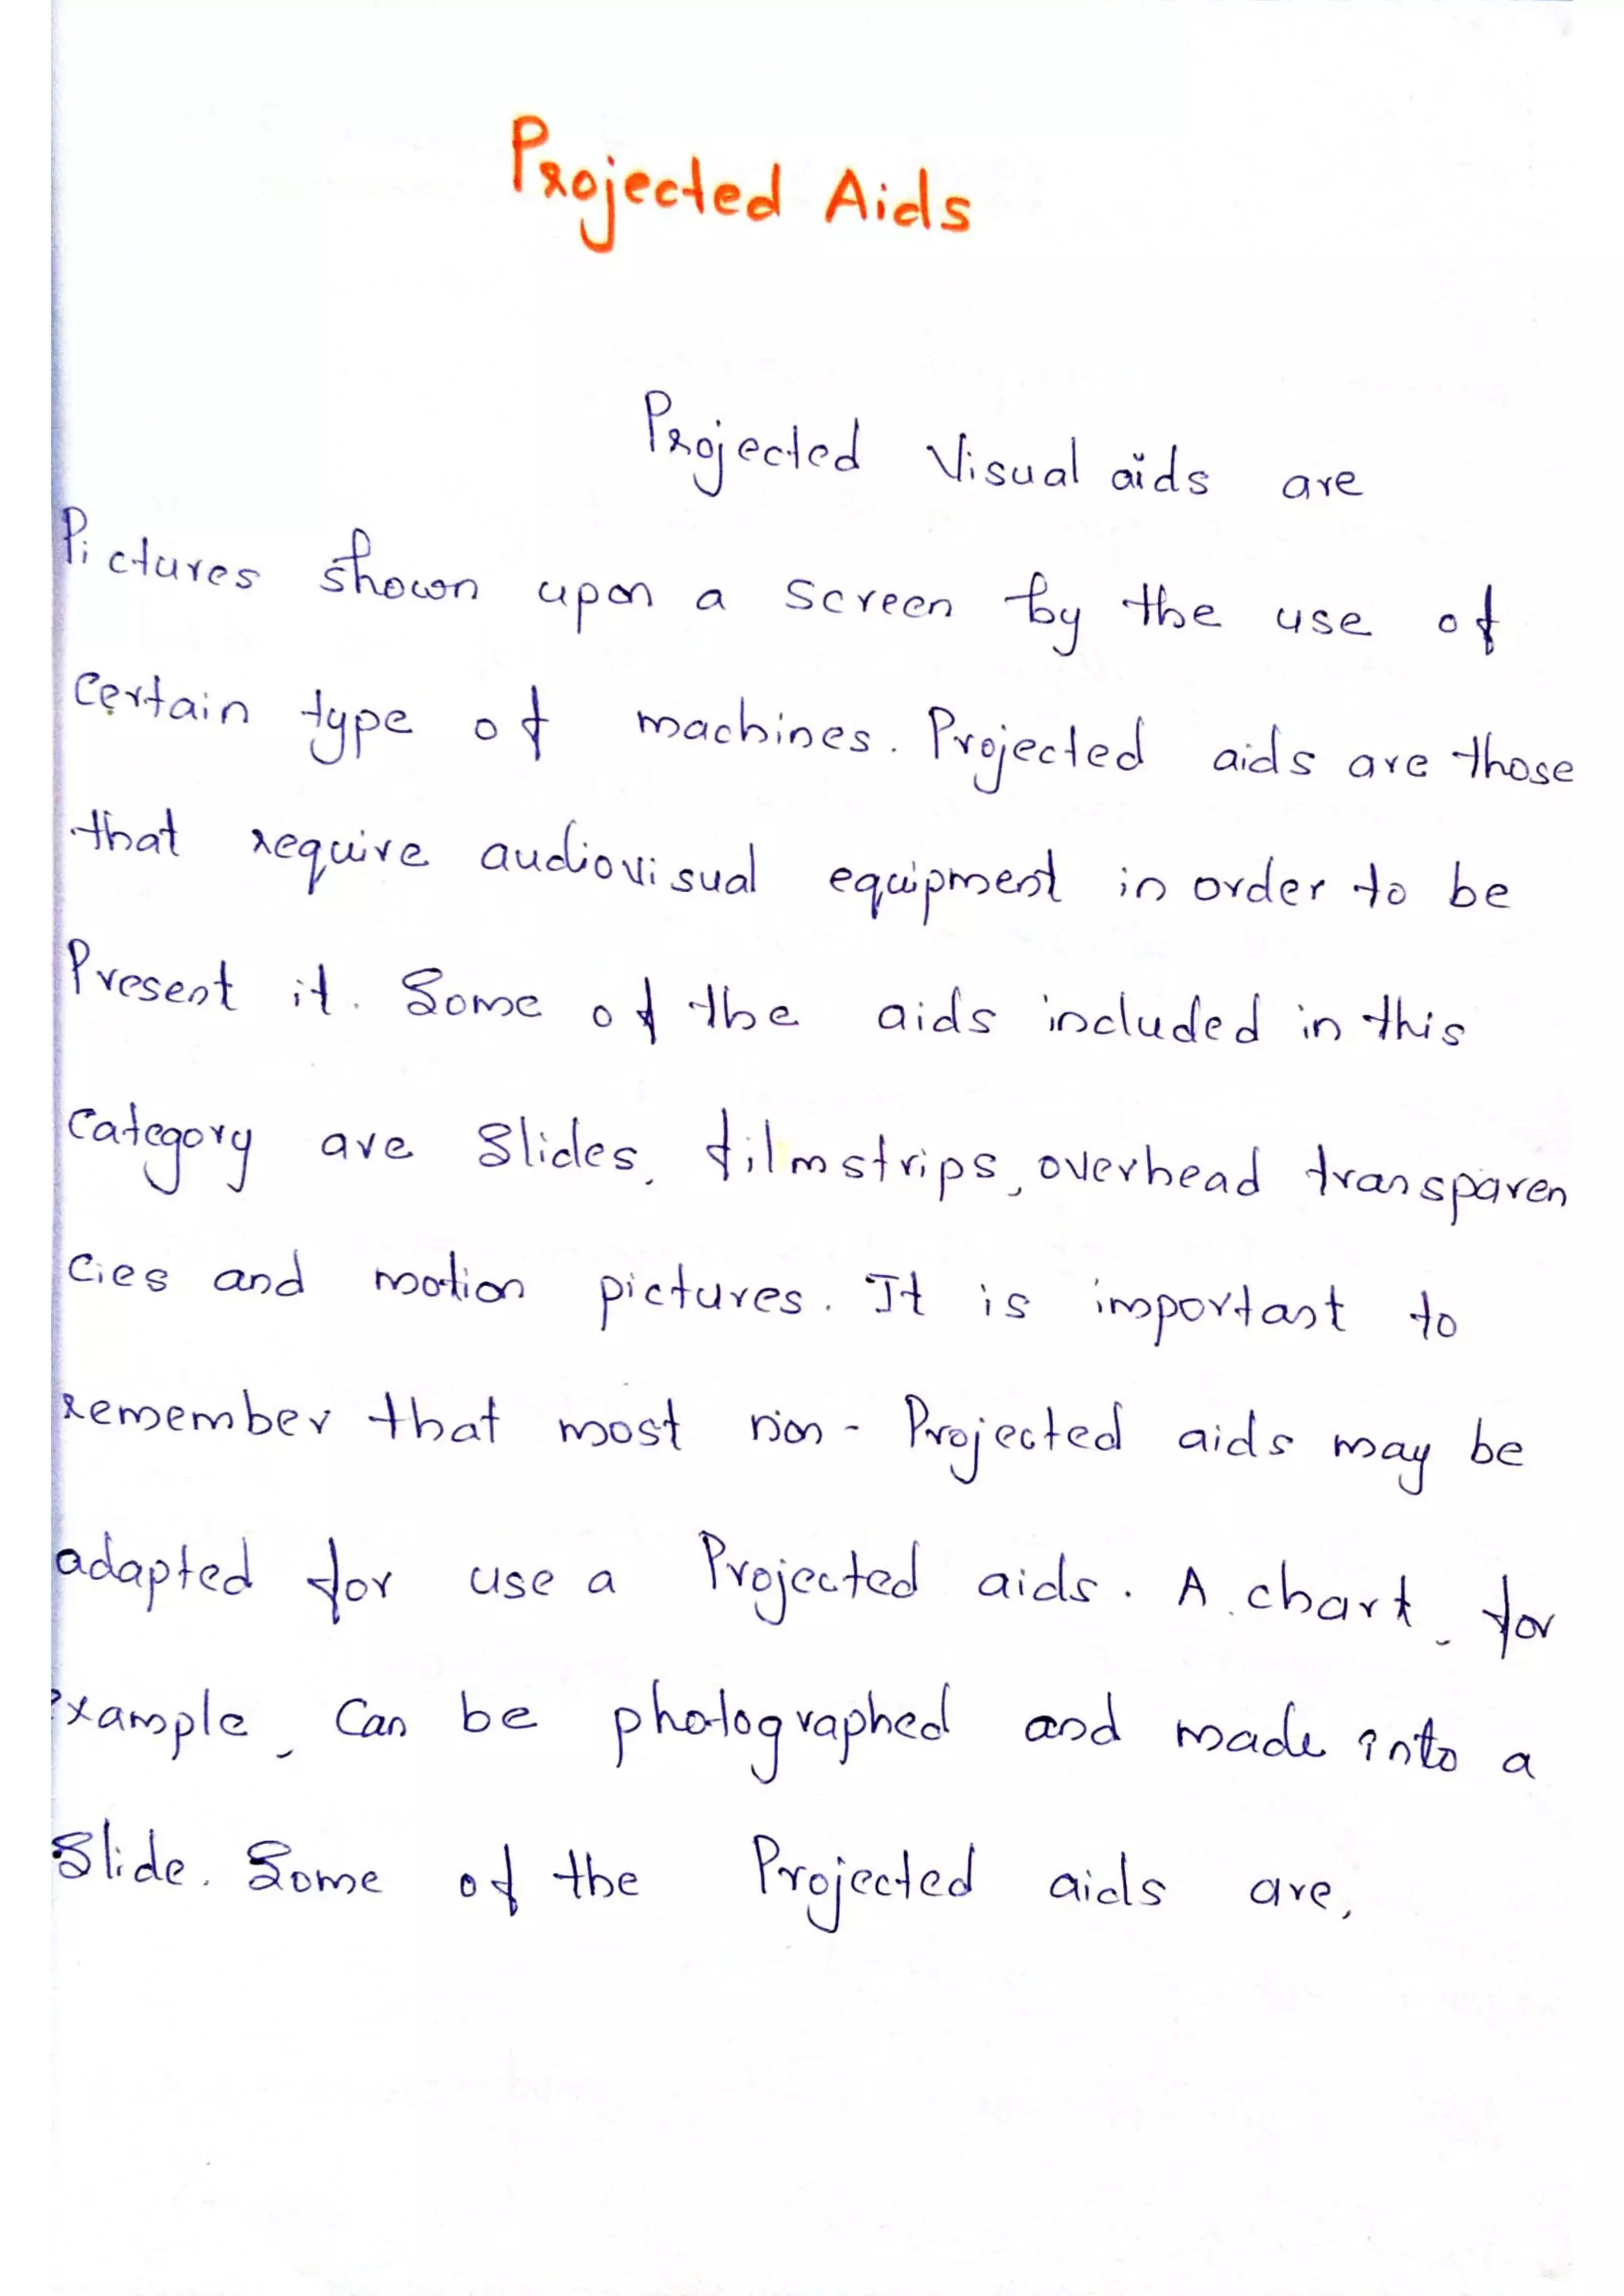 Projected Aids
Projected Visual aids are
Pictures shown upon a screen by the use of
Certain type of machines. Projected aids are those
that require audiovisual equipment in order to be
Present it. Some of the aids included in this
Category are Slides, filmstrips, overhead transparen
cies and motion pictures. It is important to
remember that most non-Projected aids may be
adapted for use a Projected aids. A chart, for
example, Can be photographed and made into a
Slide. Some of the Projected aids are,